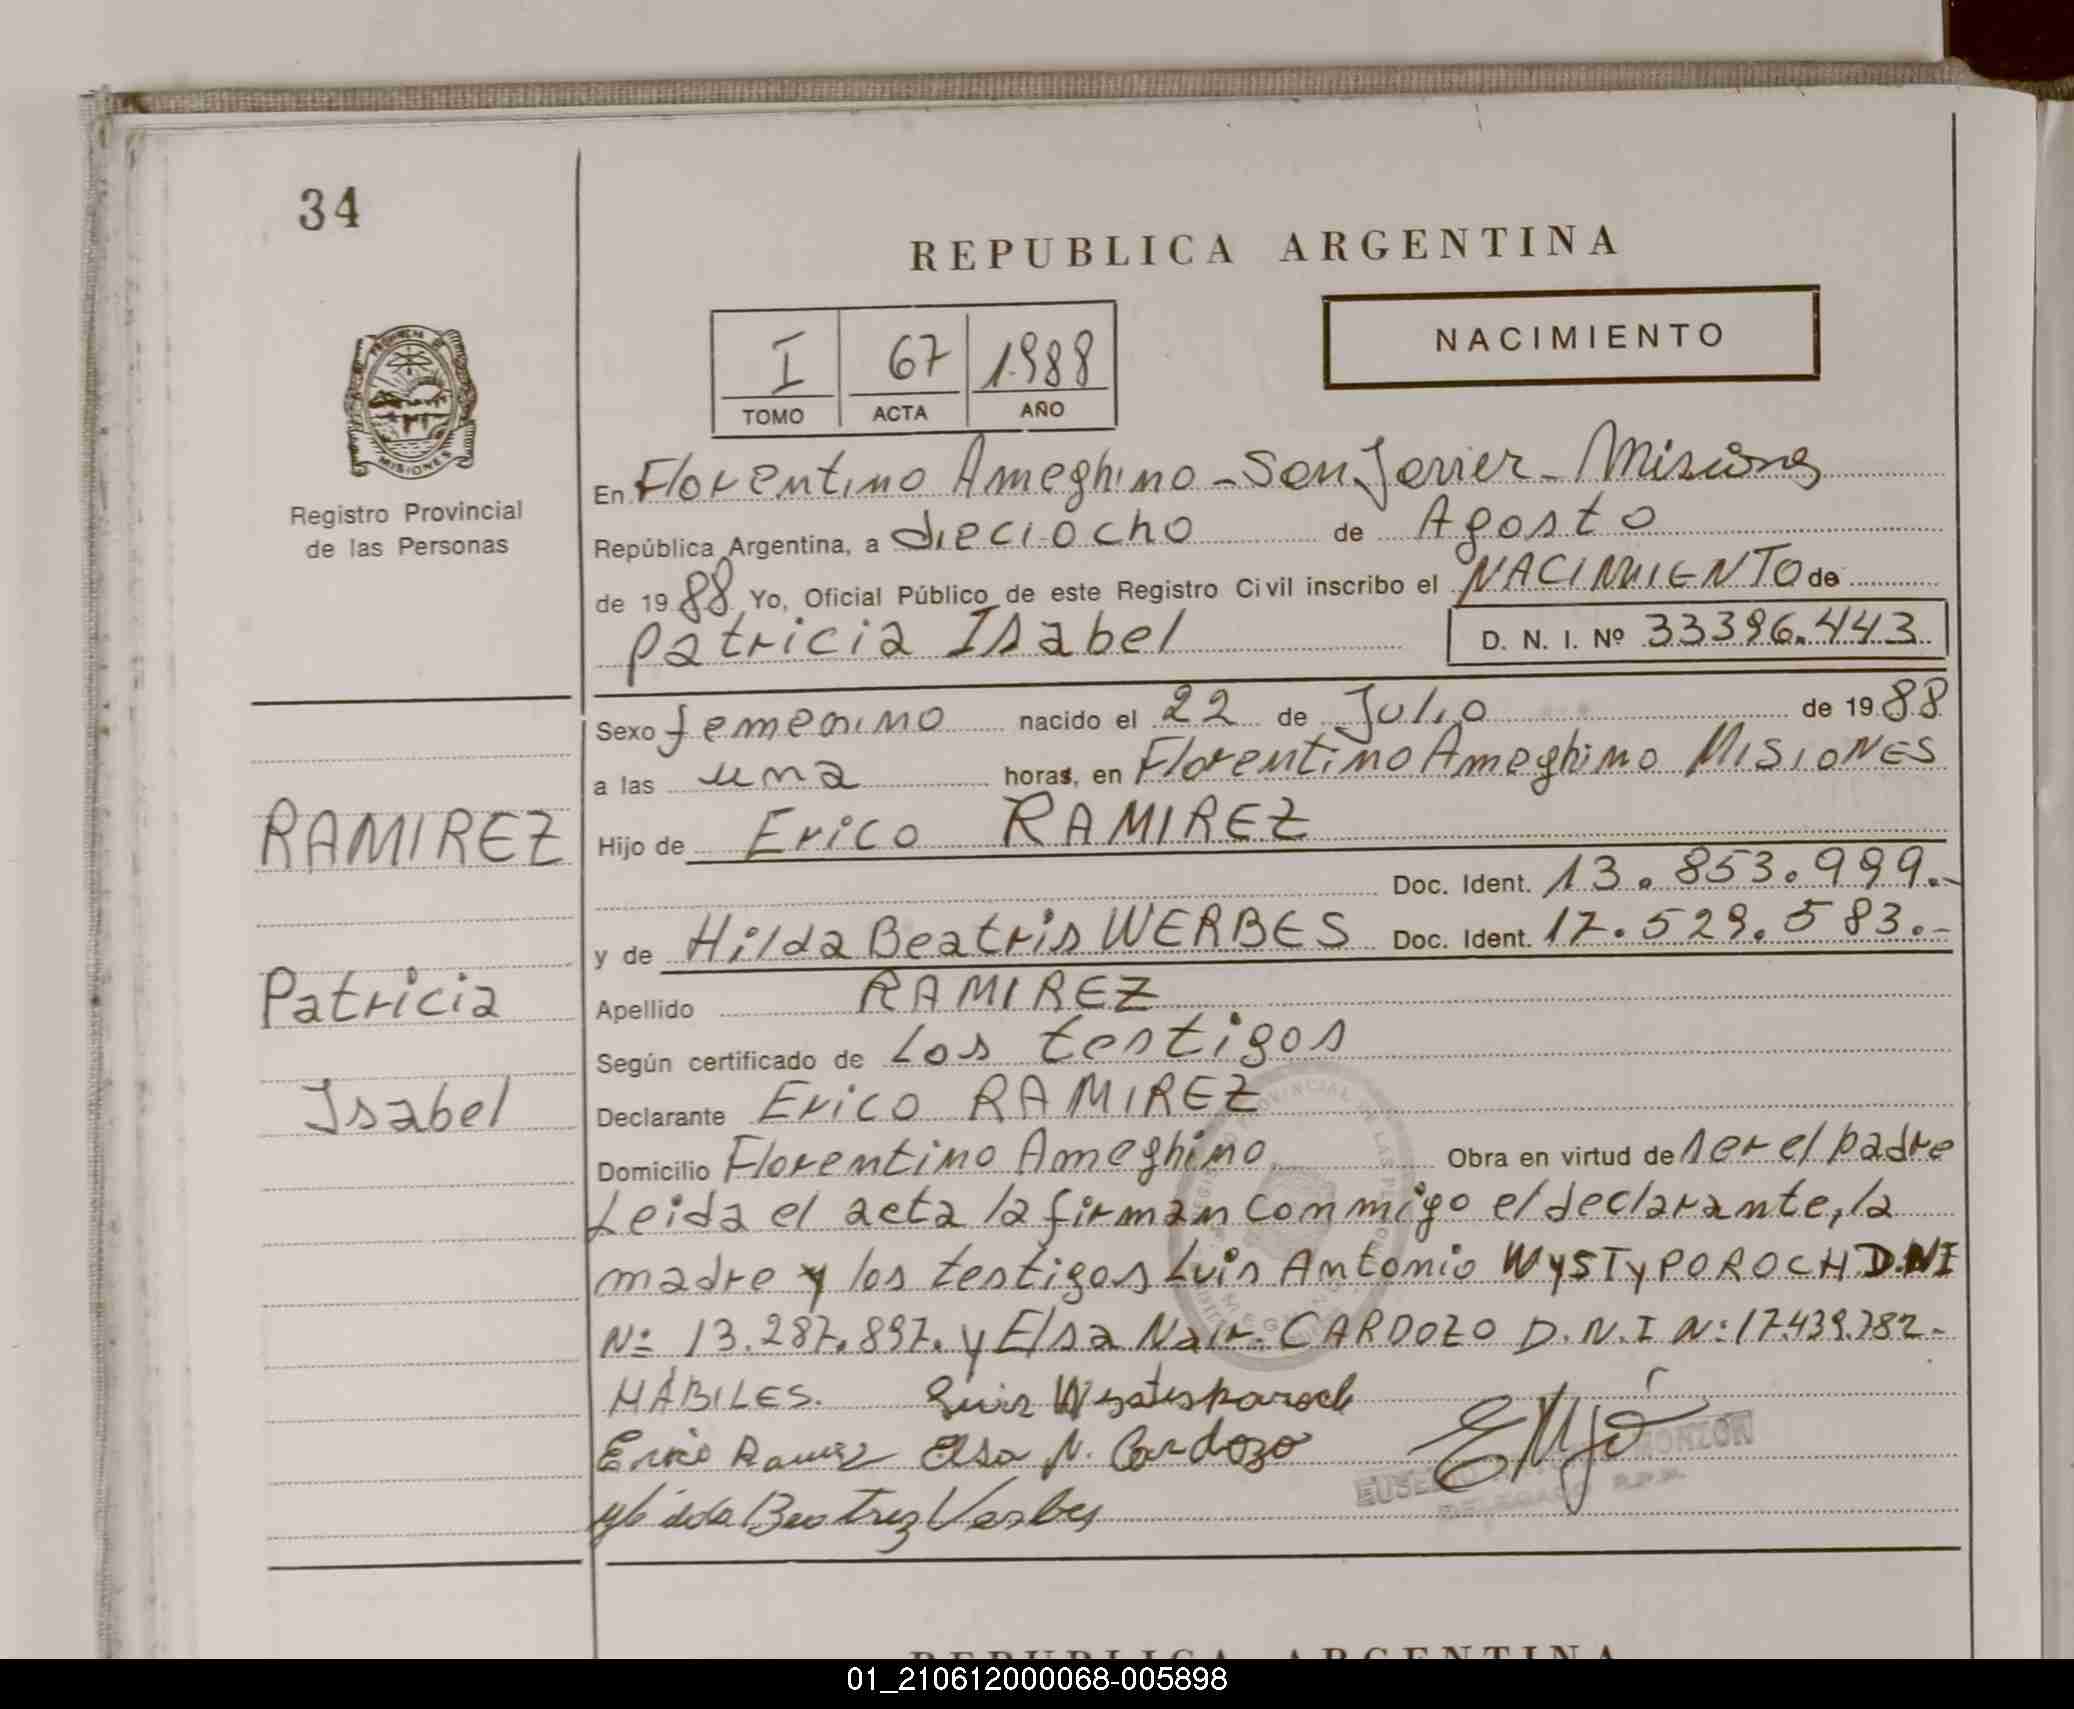 34
REPUBLICA ARGENTINA
NACIMIENTO
I 67 1988
TOMO ACTA AÑO
PROVINCIA DE
MISIONES
Registro Provincial
de las Personas
En Florentino Ameghino - San Javier - Misiones
República Argentina, a dieciocho de Agosto
de 1988 Yo, Oficial Público de este Registro Civil inscribo el NACIMIENTO de
Patricia Isabel D. N. I. Nº 33396.443
Sexo femenino nacido el 22 de Julio de 1988
a las una horas, en Florentino Ameghino MISIONES
RAMIREZ
Hijo de Erico RAMIREZ
Doc. Ident. 13.853.999.-
y de Hilda Beatris WERBES Doc. Ident. 17.529.583.-
Patricia
Apellido RAMIREZ
Según certificado de Los testigos
Isabel
Declarante Erico RAMIREZ
Domicilio Florentino Ameghino Obra en virtud de ser el padre
Leida el acta la firman conmigo el declarante, la
madre y los testigos Luis Antonio WYSTYPOROCH D.NI
Nº 13.287.897. y Elsa Nair. CARDOZO D.N.I N: 17.439.782.-
HÁBILES. Luis Wystyporoch
Erico Ramirez Elsa N. Cardozo
MONZON
DELEGADO R.P.P.
Hilda Beatriz Verbes
REPUBLICA ARGENTINA
01_210612000068-005898